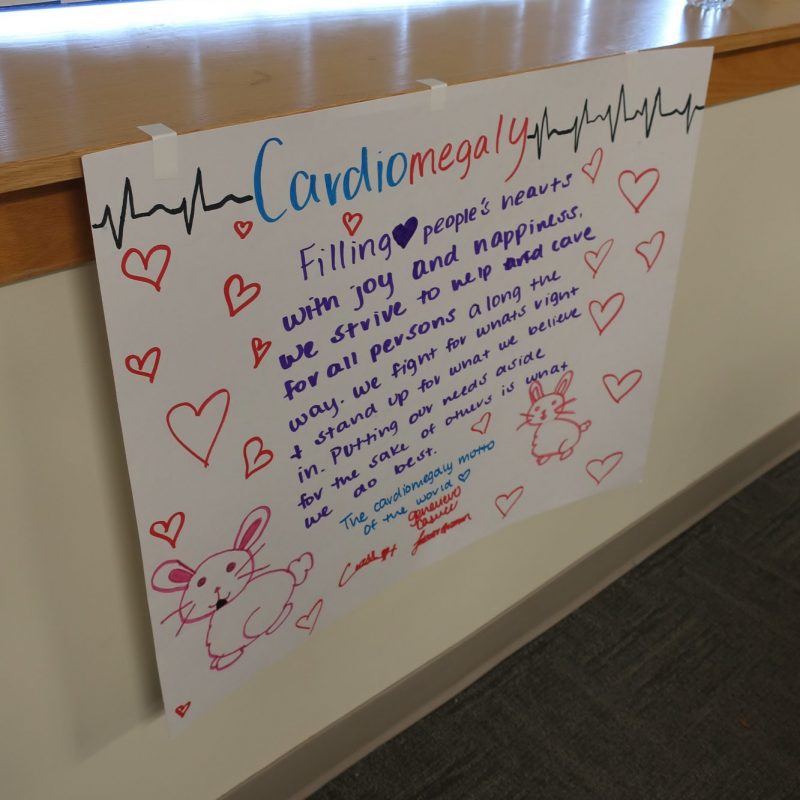 Cardiomegaly
Filling people's hearts
with joy and happiness.
We strive to help and care
for all persons along the
way. We fight for whats right
+ stand up for what we believe
in. Putting our needs aside
for the sake of others is what
we do best.
The cardiomegaly motto
of the world